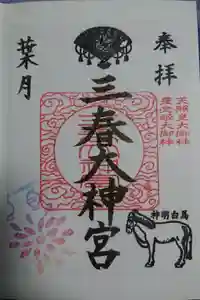 奉拝
天照皇大御神
豊受姫大御神
三春大神宮
葉月
神明白馬